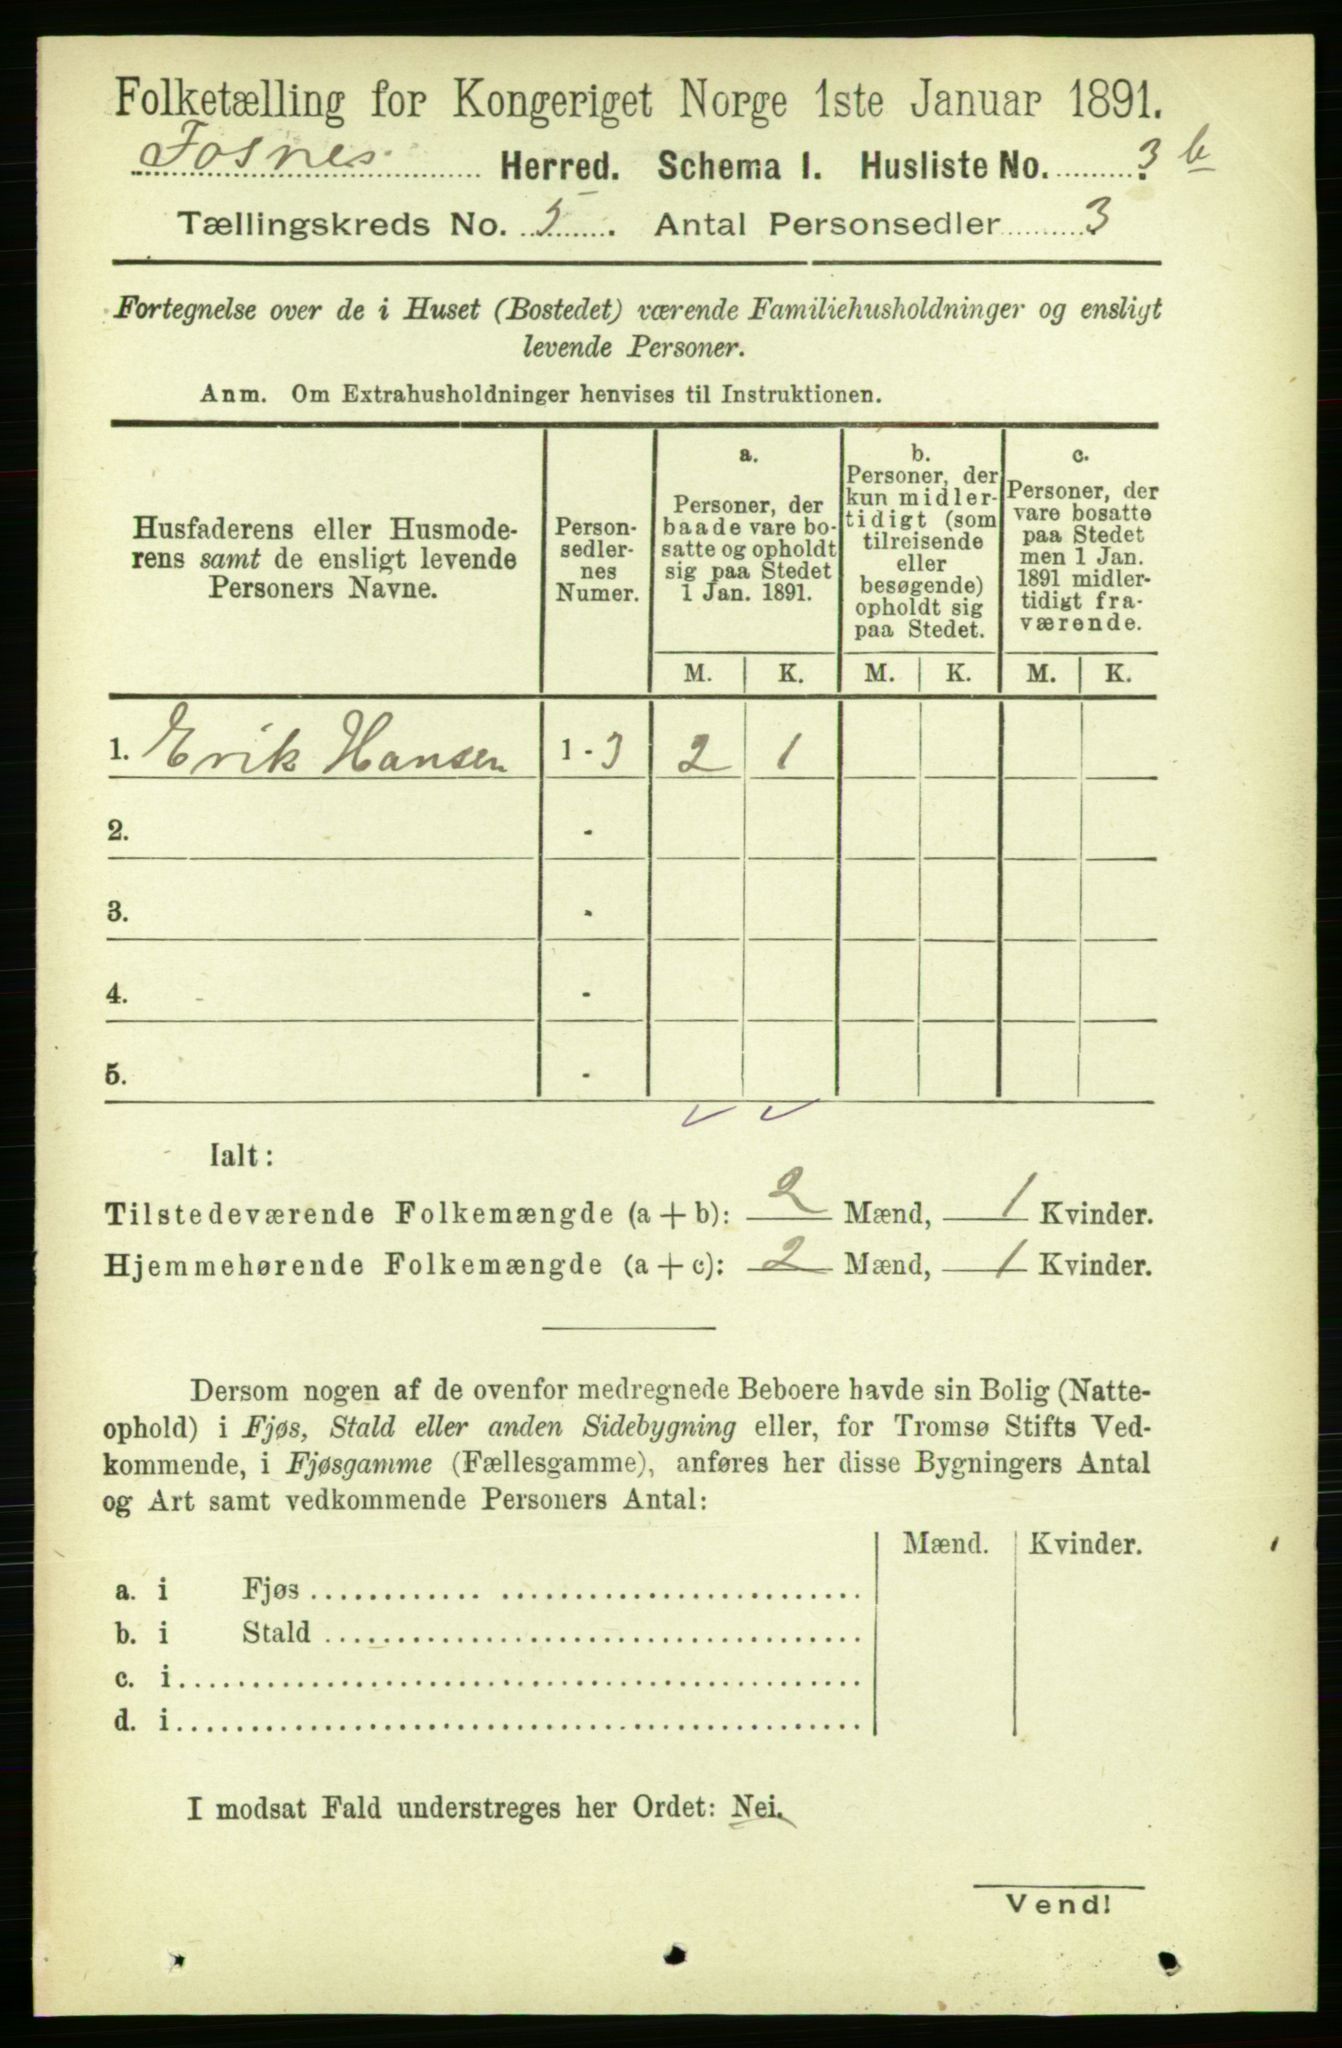 Folketælling for Kongeriget Norge 1ste Januar 1891.
Fosnes Herred. Schema I. Husliste No. 3 b
Tællingskreds No. 5. Antal Personsedler 3
Fortegnelse over de i Huset (Bostedet) værende Familiehusholdninger og ensligt
levende Personer.
Anm. Om Extrahusholdninger henvises til Instruktionen.
Husfaderens eller Husmode-
rens samt de ensligt levende
Personers Navne.
Person-
sedler-
nes
Numer.
a.
Personer, der
baade vare bo-
satte og opholdt
sig paa Stedet
1 Jan. 1891.
b.
Personer, der
kun midler-
tidigt (som
tilreisende
eller
besøgende)
opholdt sig
paa Stedet.
c.
Personer, der
vare bosatte
paa Stedet
men 1 Jan.
1891 midler-
tidigt fra-
værende.
M. K. M. K. M. K.
1. Erik Hansen 1 - 3 2 1
2. -
3. -
4. -
5. -
Ialt:
Tilstedeværende Folkemængde (a + b): 2 Mænd, 1 Kvinder.
Hjemmehørende Folkemængde (a + c): 2 Mænd, 1 Kvinder.
Dersom nogen af de ovenfor medregnede Beboere havde sin Bolig (Natte-
ophold) i Fjøs, Stald eller anden Sidebygning eller, for Tromsø Stifts Ved-
kommende, i Fjøsgamme (Fællesgamme), anføres her disse Bygningers Antal
og Art samt vedkommende Personers Antal:
Mænd. Kvinder.
a. i Fjøs
b. i Stald
c. i
d. i
I modsat Fald understreges her Ordet: Nei.
Vend!